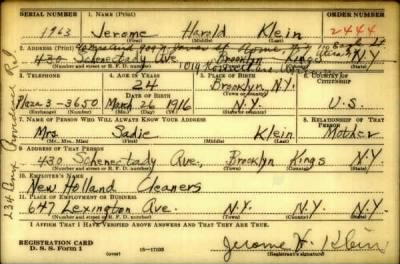 SERIAL NUMBER 1. NAME (Print) ORDER NUMBER
1963 Jerome Harold Klein 2444
(First) (Middle) (Last)
2. ADDRESS (Print)
430 Schenectady Ave. Brooklyn Kings N.Y.
(Number and street or R. F. D. number) (Town) (County) (State)
3. TELEPHONE 4. AGE IN YEARS 5. PLACE OF BIRTH 6. COUNTRY OF CITIZENSHIP
24 Brooklyn, N.Y.
DATE OF BIRTH
Plaza 3-3650 March 26 1916 N.Y. U.S.
(Exchange) (Number) (Mo.) (Day) (Yr.) (State or country)
7. NAME OF PERSON WHO WILL ALWAYS KNOW YOUR ADDRESS 8. RELATIONSHIP OF THAT PERSON
Mrs. Sadie Klein Mother
(Mr., Mrs., Miss) (First) (Middle) (Last)
9. ADDRESS OF THAT PERSON
430 Schenectady Ave., Brooklyn Kings N.Y.
(Number and street or R. F. D. number) (Town) (County) (State)
10. EMPLOYER'S NAME
New Holland Cleaners
11. PLACE OF EMPLOYMENT OR BUSINESS
647 Lexington Ave. N.Y. N.Y.
(Number and street or R. F. D. number) (Town) (County) (State)
I AFFIRM THAT I HAVE VERIFIED ABOVE ANSWERS AND THAT THEY ARE TRUE.
REGISTRATION CARD
D. S. S. Form 1 (over) 16-17105
Jerome H. Klein
(Registrant's signature)